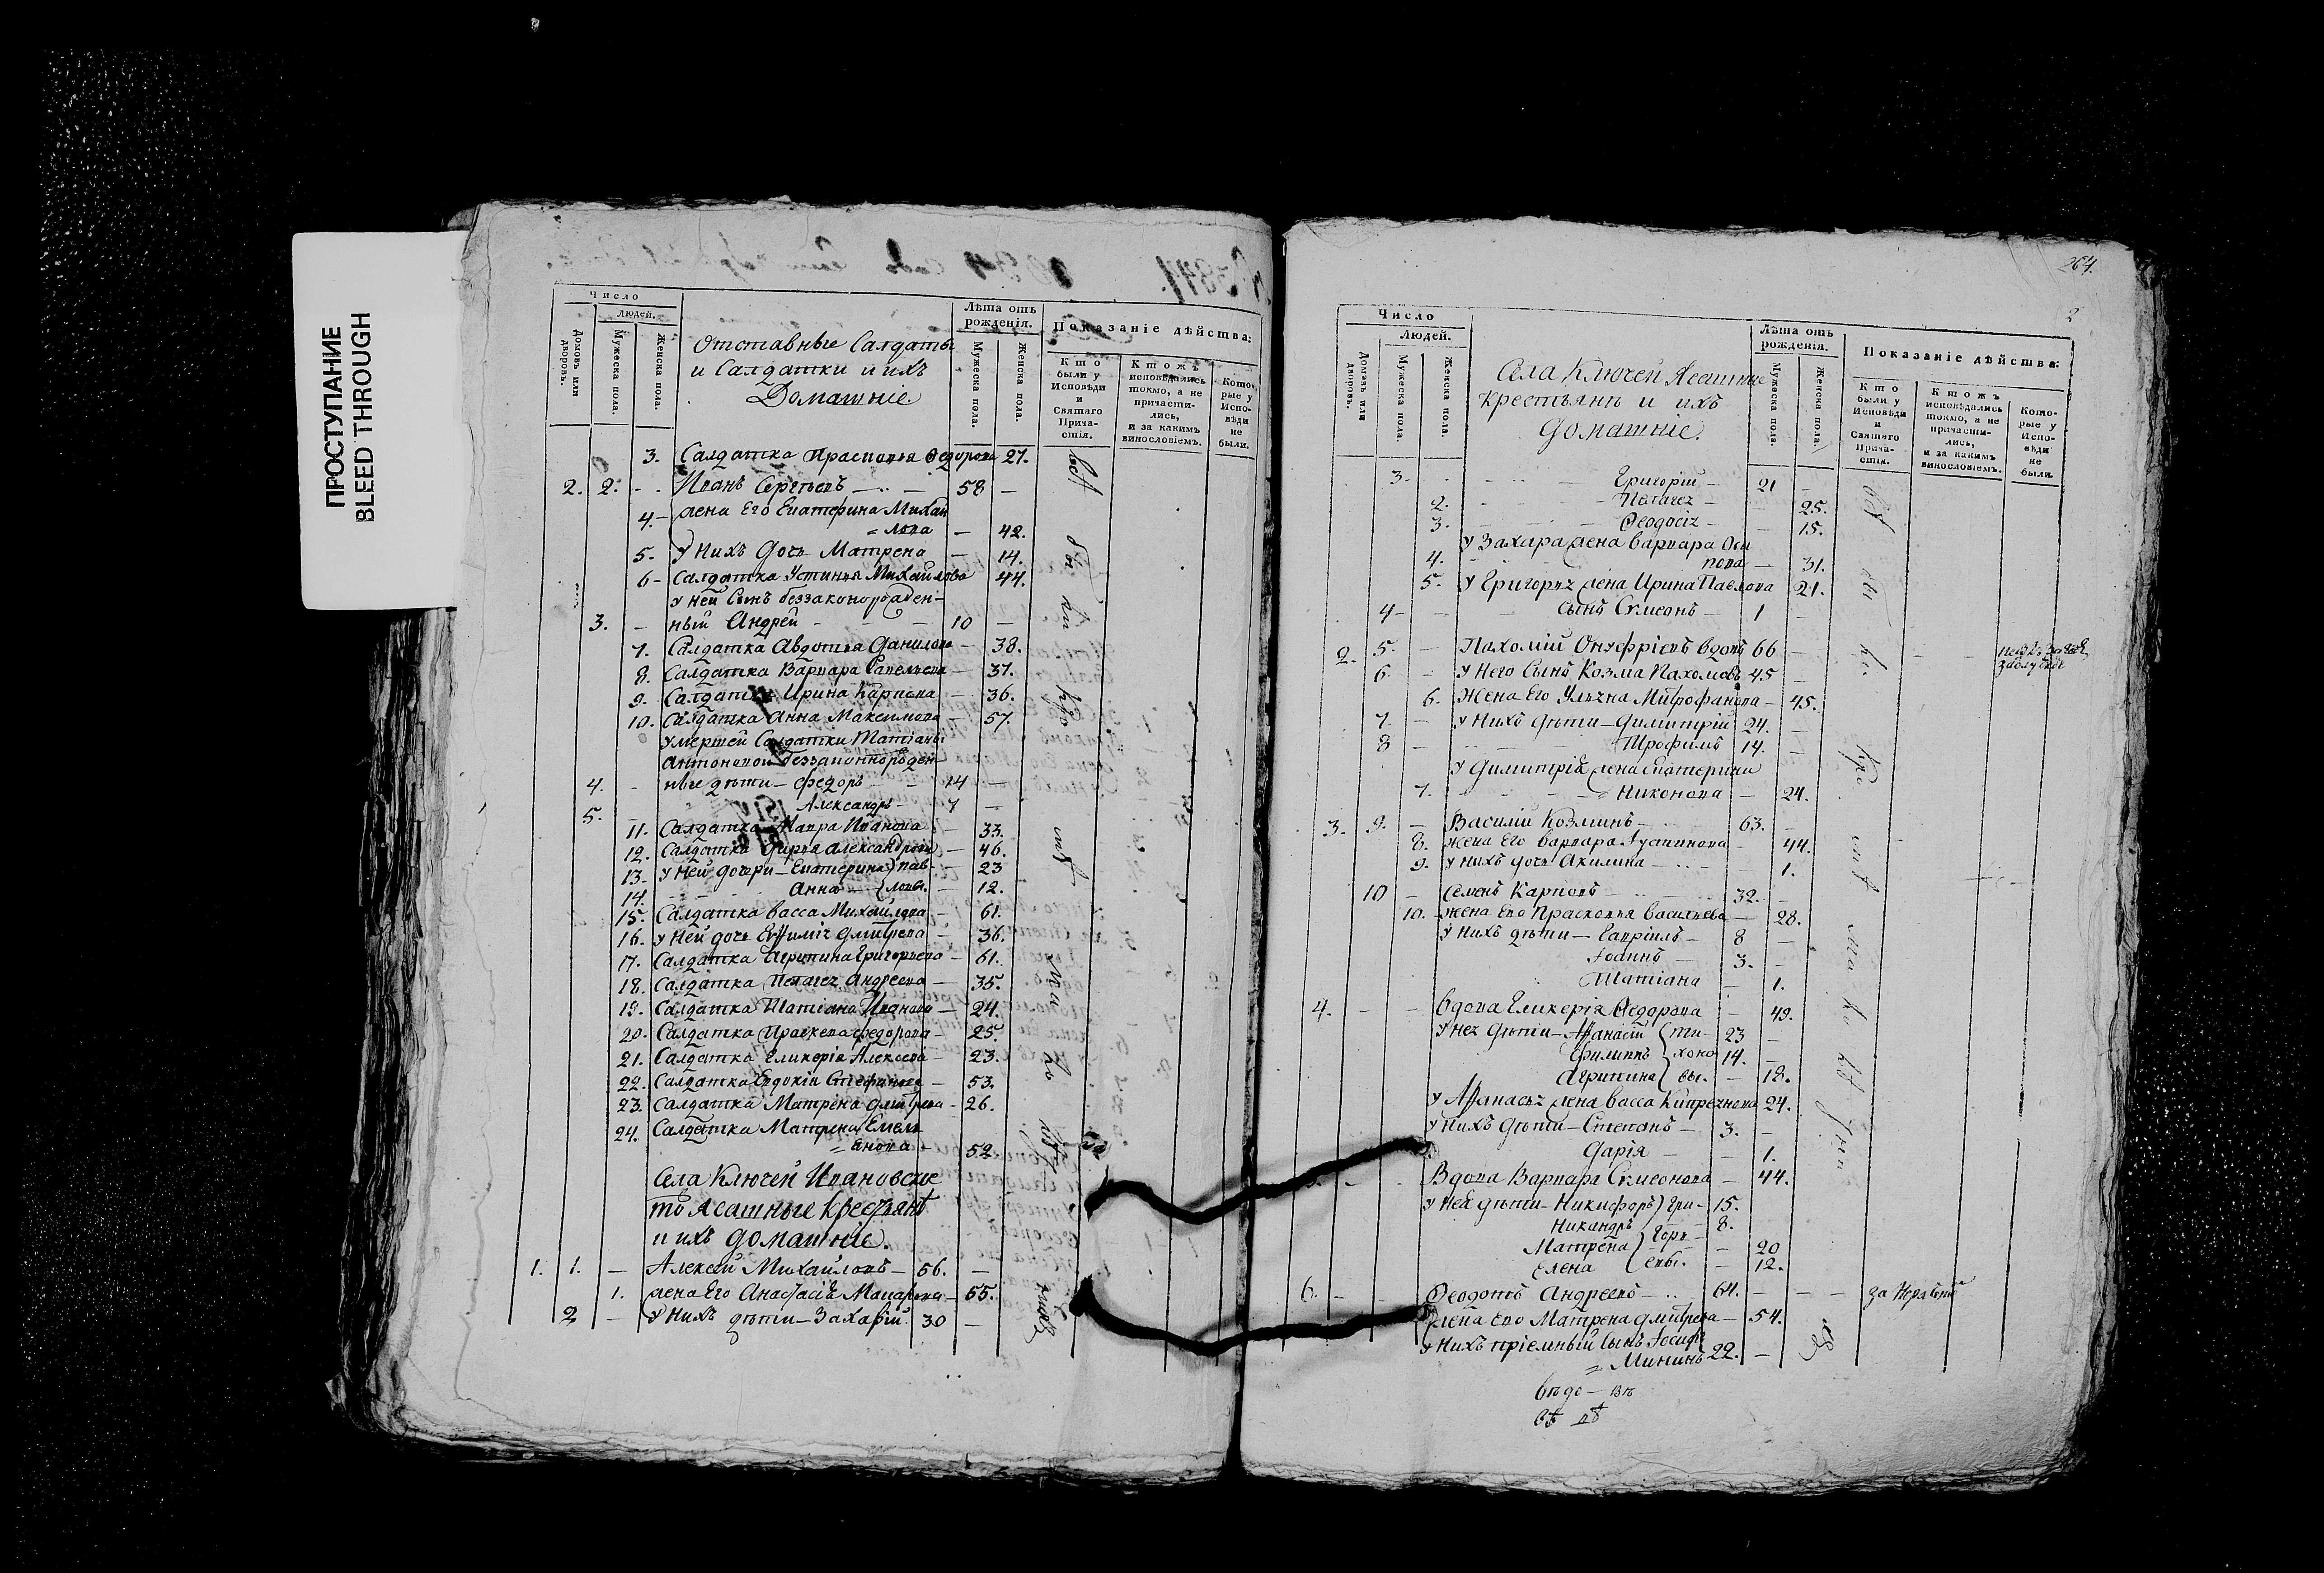 ПРОСТУПАНИЕ
BLEED THROUGH
Число
людей.
Домовъ или дворовъ.
Мужеска пола.
Женска пола.
Отставные Салдаты
и Салдатки и ихъ
Домашніе
Лѣта отъ рожденія.
Мужеска пола.
Женска пола.
Показаніе дѣйства:
Кто были у Исповѣди и Святаго Прича-стія.
Ктожъ исповѣдались токмо, а не причасти-лись, и за какимъ винословіемъ.
Кото-рые у Испо-вѣди не были.
3. Салдатка Прасковья Ѳедорова 27.
2. 2. - - Иванъ Сергѣевъ — 58 —
4. — жена Его Екатерина Михай
= лова — 42.
5. У Нихъ дочь Матрена — 14.
6 - Салдатка Устинья Михайлова 44.
у ней Сынъ беззаконорожден-
3. — ный Андрей - — — 10 —
7. Салдатка Авдотья Данилова — 38.
8. Салдатка Варвара Савельева — 37.
9. Салдатка Ирина Карпова — 36.
10. Салдатка Анна Максимова — 57.
Умершей Салдатки Татіаны
Антоновой беззаконнорожден-
4. - ные дѣти — Федоръ - - 14 —
5. — Александръ — 7 —
11. Салдатка Мавра Иванова — 33.
12. Салдатка Дарья Александрова — 46.
13. У ней дочери — Екатерина } Пав- — 23
14. Анна — } ловы. — 12.
15. Салдатка Васса Михайлова — 61.
16. У ней дочь Евфимія Дмитрева — 36.
17. Салдатка Агрипина Григорьева — 61.
18. Салдатка Пелагея Андреева — 35.
19. Салдатка Татіана Иванова — 24.
20. Салдатка Прасковья Федорова — 25.
21. Салдатка Гликерія Алексеева — 23.
22. Салдатка Евдокія Стефанова — 53.
23. Салдатка Матрена Дмитрева - 26.
24. Салдатка Матрена Емель
= янова — 52
Села Ключей Ивановское
то Ясашные Крестьянѣ
и ихъ домашніе.
1. 1. — Алексѣй Михайловъ — 56. —
1. жена Его Анастасія Макарова — 55.
2 — У Нихъ дѣти — Захарій 30 —
264.
2
Число
Людей.
Домовъ или дворовъ.
Мужеска пола.
Женска пола.
Села Ключей Ясашные
крестьяне и ихъ
домашніе.
Лѣта отъ рожденія.
Мужеска пола.
Женска пола.
Показаніе дѣйства:
Кто были у Исповѣди и Святаго Прича-стія.
Ктожъ исповѣдались токмо, а не причасти-лись, и за какимъ винословіемъ.
Кото-рые у Испо-вѣди не были.
3. Григорій — 21 —
2. Пелагея — 25.
3. Ѳеодосія - 15.
у Захара жена Варвара Оси
4. пова — 31.
5. У Григорья жена Ирина Павлова 21.
4 - — сынъ Сѵмеонъ — 1 -
2. 5. — Пахомій Онуфріевъ вдовъ 66 —
6. — У Него Сынъ Козма Пахомовъ 45 —
6. Жена Его Ульяна Митрофанова — 45.
7. — У Нихъ дѣти — Димитрій 24. —
8 — Трофимъ 14. —
У Димитрія жена Екатерина
7. = Никонова — 24.
3. 9. — Василій Козминъ — 63. —
8. жена Его Варвара Іустинова — 44.
9. У нихъ дочь Акилина — 1.
10 — Семенъ Карповъ — 32. —
10. — жена Ево Прасковья Васильева — 28.
У нихъ дѣти — Гавріилъ — 8 —
Іоаннъ — 3. —
Татіана — 1.
4. — — Вдова Гликерія Ѳедорова — 49.
У нея дѣти — Афанасій { Ти- 23 —
Филиппъ { хоно 14. —
Агрипина { вы. — 18.
У Афанасья жена Васса Кипреянова 24.
У Нихъ дѣти — Степанъ — 3. —
Дарія — — 1.
Вдова Варвара Сѵмеонова — 44.
У нея дѣти — Никифоръ } Гри- 15.
Никандръ } горь- 8.
Матрена } — 20
Елена } евы. — 12.
6. — — Ѳеодотъ Андреевъ — 64. — — — за Нераденіе
жена Ево Матрена Дмитрева — 54.
У Нихъ пріемный сынъ Іосифъ
= Мининъ 22. —